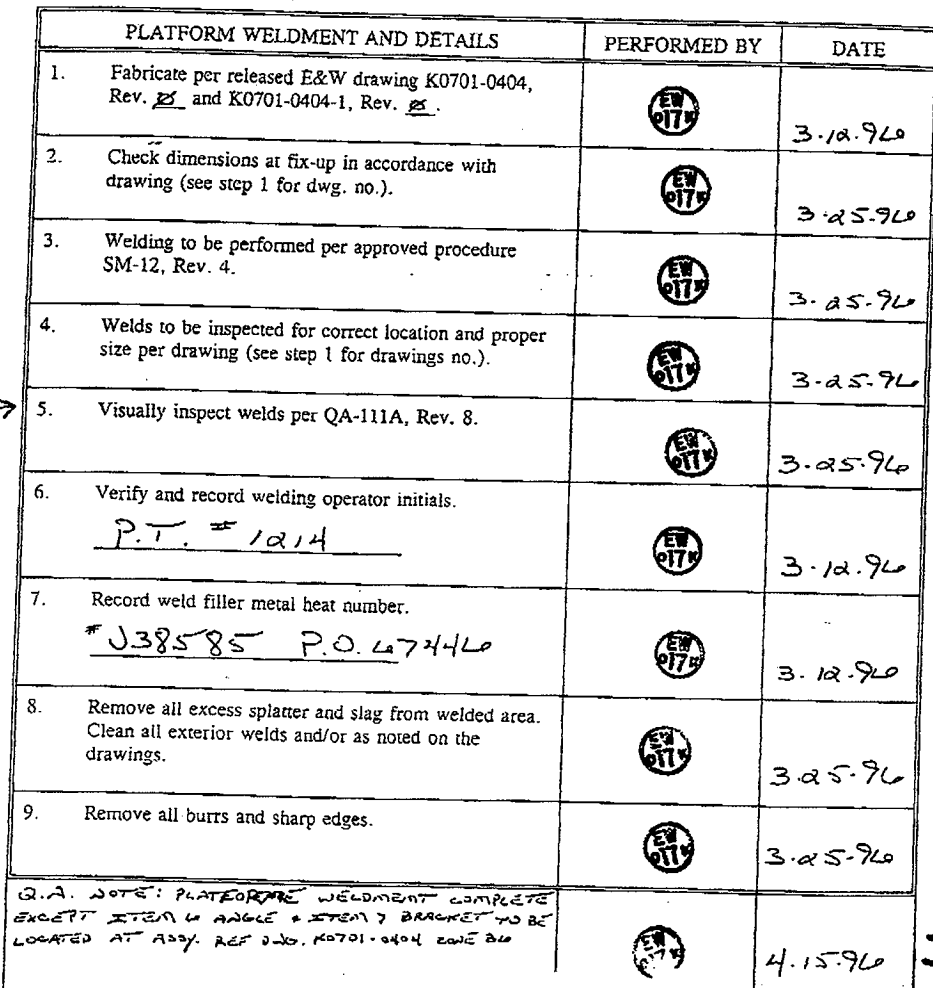 PLATFORM WELDMENT AND DETAILS PERFORMED BY DATE
1. Fabricate per released E&W drawing K0701-0404,
Rev. Ø and K0701-0404-1, Rev. Ø.
EW
017K
3.12.96
2. Check dimensions at fix-up in accordance with
drawing (see step 1 for dwg. no.).
EW
017K
3.25.96
3. Welding to be performed per approved procedure
SM-12, Rev. 4.
EW
017K
3.25.96
4. Welds to be inspected for correct location and proper
size per drawing (see step 1 for drawings no.).
EW
017K
3.25.96
5. Visually inspect welds per QA-111A, Rev. 8.
EW
017K
3.25.96
6. Verify and record welding operator initials.
P.T. # 1214
EW
017K
3.12.96
7. Record weld filler metal heat number.
#J38585 P.O. 67446
EW
017K
3.12.96
8. Remove all excess splatter and slag from welded area.
Clean all exterior welds and/or as noted on the
drawings.
EW
017K
3.25.96
9. Remove all burrs and sharp edges.
EW
017K
3.25.96
Q.A. NOTE: WELDMENT COMPLETE
EXCEPT ITEM 6 ANGLE + ITEM 7 BRACKET TO BE
LOCATED AT ASSY. REF DWG. K0701-0404 ZONE B6
EW
017K
4.15.96